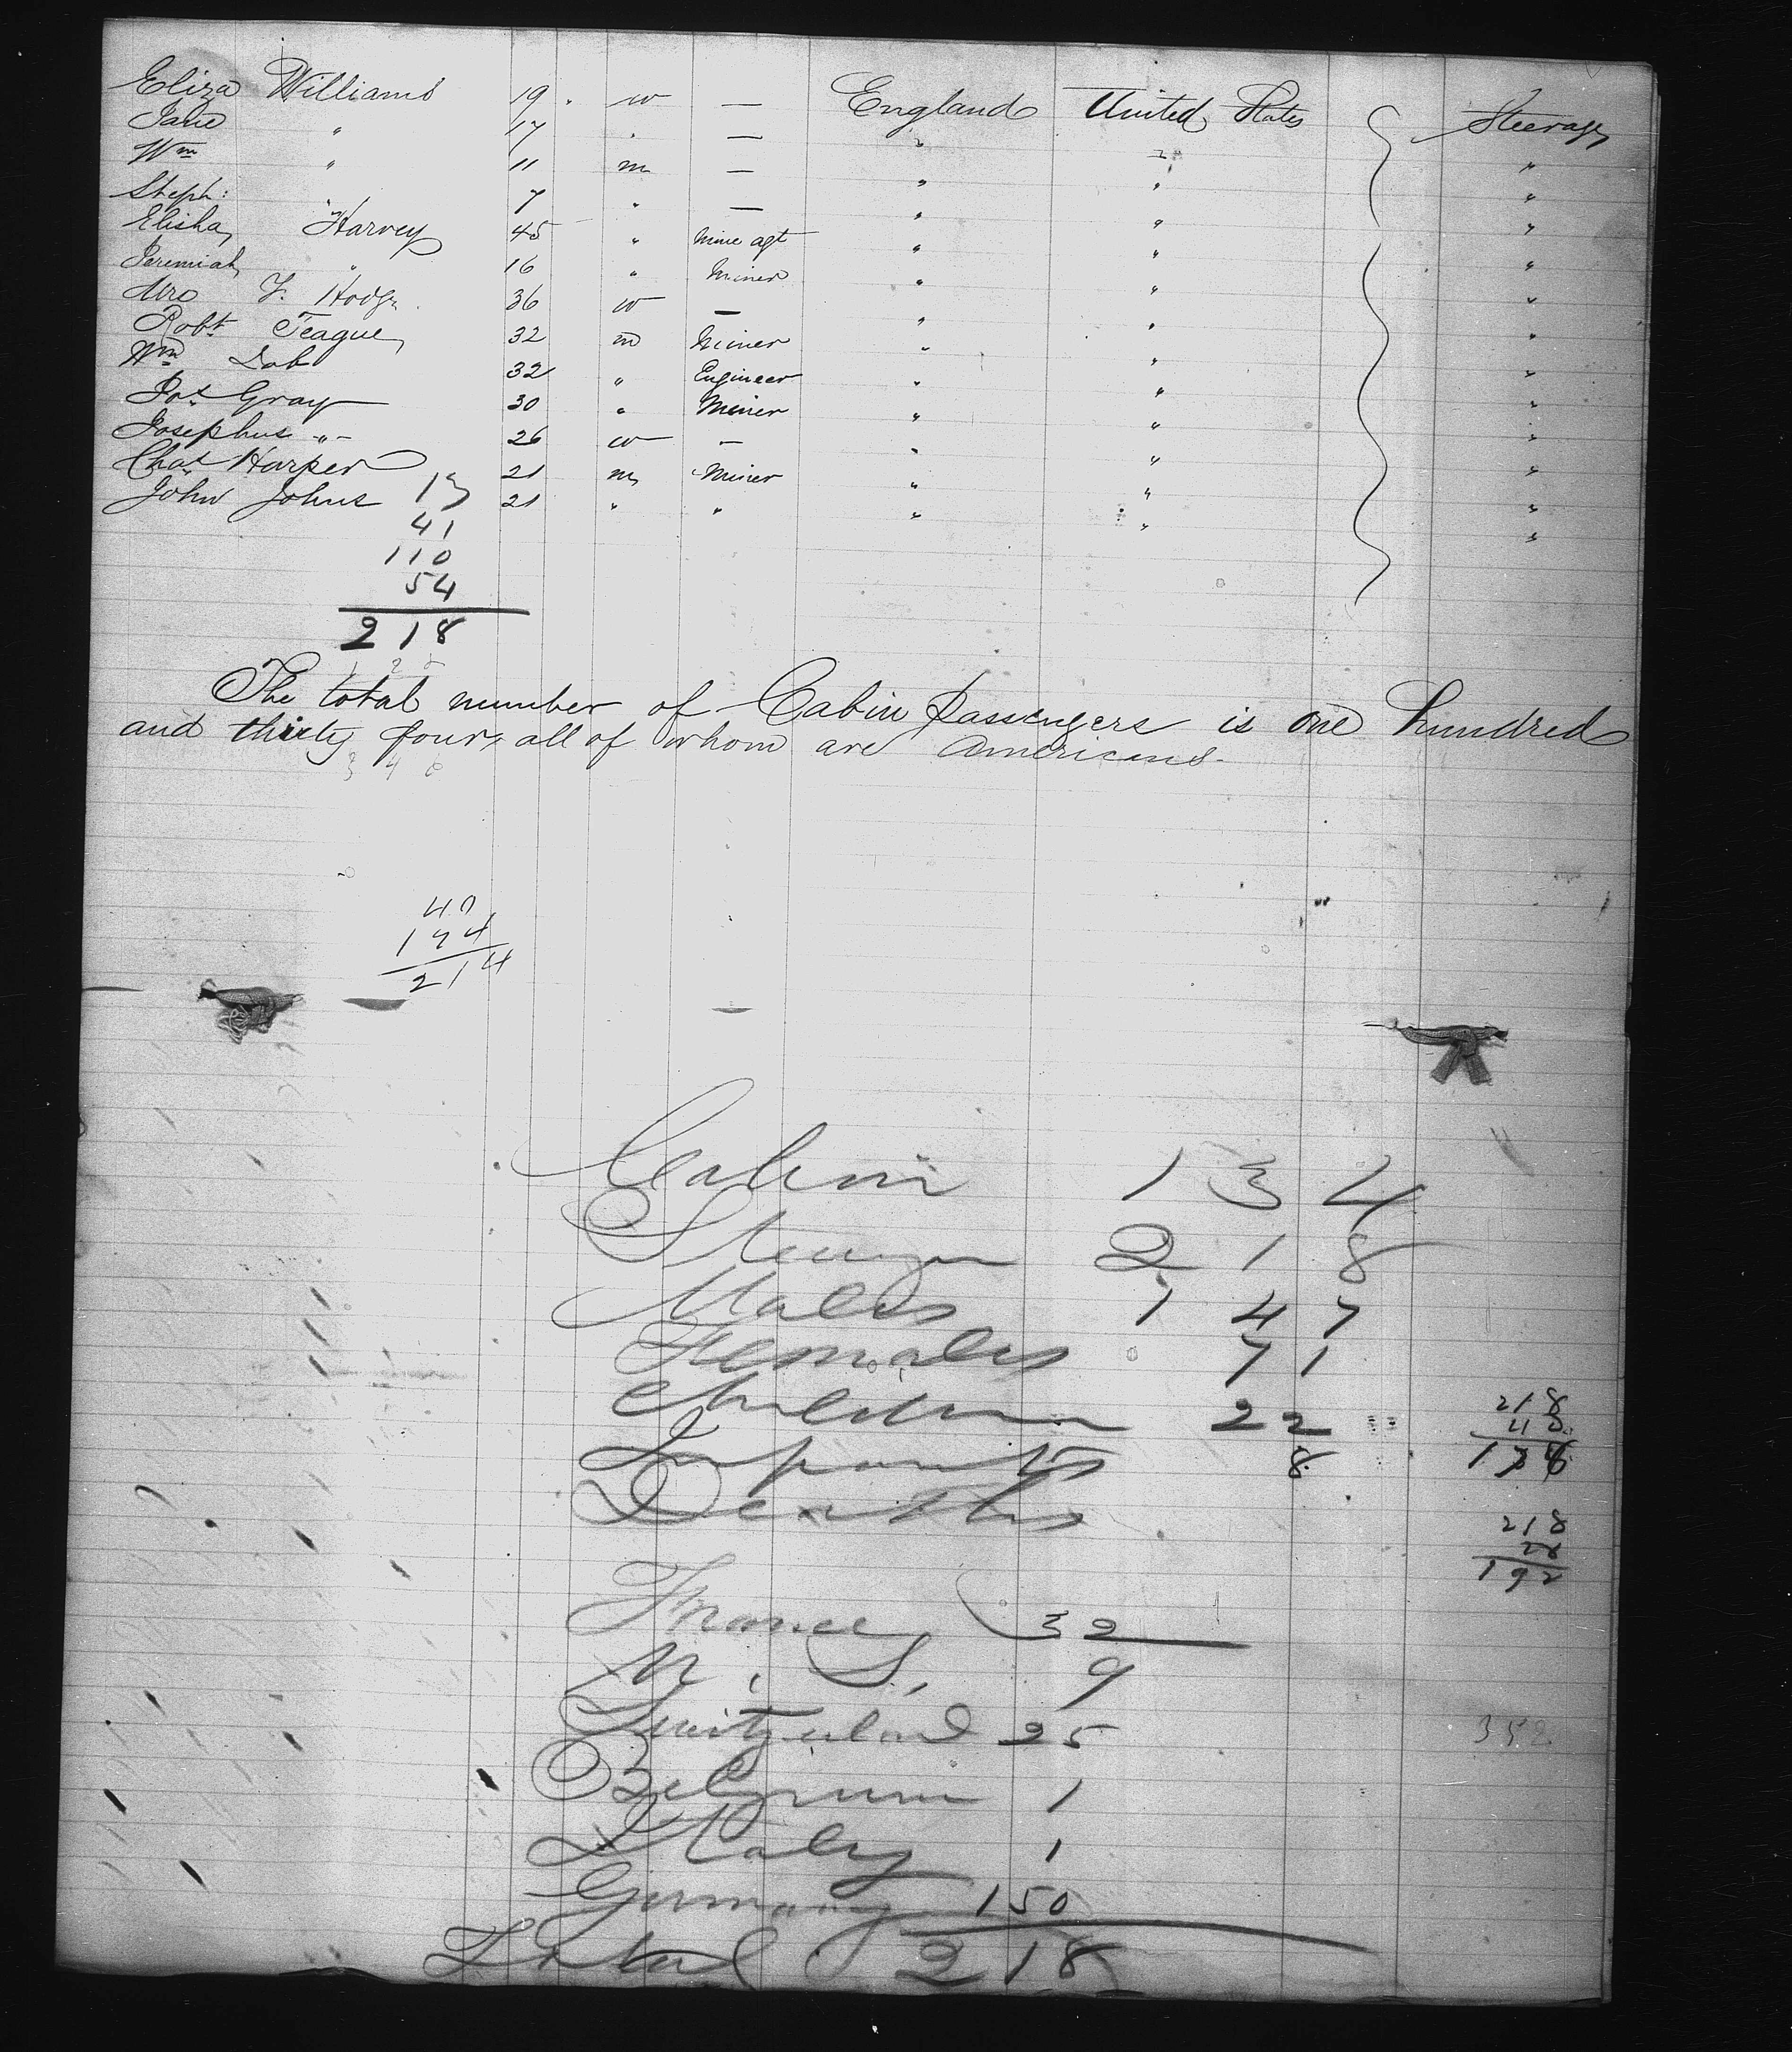 Eliza Williams 19 . w — England United States Steerage
Jane " 17 . — " " "
Wm " 11 m — " " "
Steph: " 7 " — " " "
Elisha Harvey 45 " Mine agt " " "
Jeremiah " 16 " Miner " " "
Mrs F. Hodge 36 w — " " "
Robt Teague 32 m Miner " " "
Wm 32 " Engineer " " "
Jas Gray 30 " Miner " " "
Josephus " 26 w — " " "
Chas Harper 21 m Miner " " "
John Johns 21 " " " " "
13
41
110
54
218
The total number of Cabin passengers is one hundred
and thirty four, all of whom are Americans.
40
174
214
Cabin 134
Steerage 218
Males 147
Females 71
Children 22
Infants 8
Deaths
218
192
France 32
U.S. 9
Switzerland 25
352
Belgium 1
Italy 1
Germany 150
Total 218